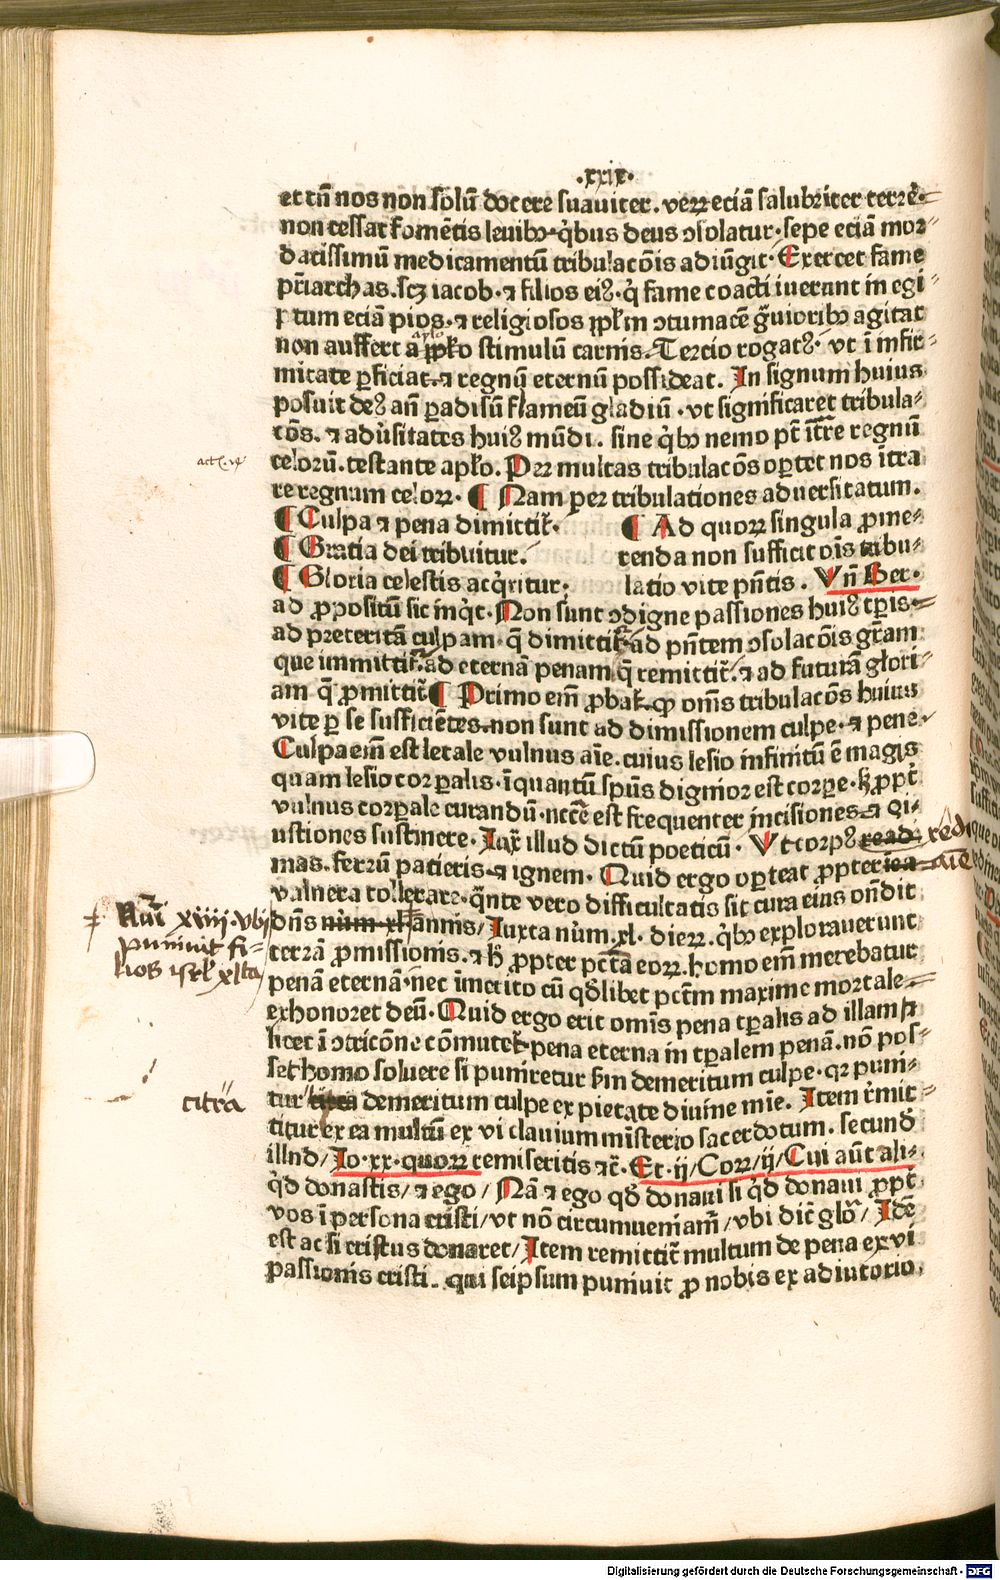 .xxix.
et tñ nos non solũ docere suauiter. verꝝ eciã salubriter terrẽ.
non cessat fomẽtis leuibꝰ q̇bus deus ↄsolatur. sepe eciã mor
datissimũ medicamentũ tribulacõis adiũgit. Exercet fame
p̃riarchas. scꝫ iacob. ⁊ filios eiꝰ. q̇ fame coacti iuerunt in egi
ptum eciã pios. ⁊ religiosos pp̃lm ↄtumacẽ g̃uioribꝰ agitat
non auffert a apłlo stimulũ carnis. Tercio rogatꝰ. vt ĩ infir
mitate ꝑficiat. ⁊ regnũ eternũ possideat. In signum huius
posuit deꝰ añ ꝑadisũ flameũ gladiũ. vt significaret tribula
cõs. ⁊ adũsitates huiꝰ mũdi. sine q̇bꝰ nemo pt̃ ĩtrẽ regnũ
actꝭ. 14
celorũ. testante apło. Per multas tribulacõs oꝑtet nos ĩtra
re regnum celoꝝ. ¶ Nam per tribulationes aduersitatum.
¶ Culpa ⁊ pena dimittiť.
¶ Gratia dei tribuitur.
¶ Gloria celestis acq̇ritur.
¶ Ad quoꝝ singula ꝓme
renda non sufficit oĩs tribu
latio vite pñtis. Vñ Ber.
ad ꝓpositũ sic inq̇t. Non sunt ↄdigne passiones huiꝰ tꝑis
ad preteritã culpam. q̃ dimittiť ad pñtem ↄsolacõis gr̃am
que immittiť. ad eternã penam q̃ remittiť. ⁊ ad futurã glori
am q̃ ꝓmittiť ¶ Primo em̃ ꝓbať. ꝙ oms̃ tribulacõs huius
vite ꝑ se sufficiẽtes. non sunt ad dimissionem culpe. ⁊ pene.
Culpa em̃ est letale vulnus aĩe. cuius lesio infinitũ ẽ magis
quam lesio corꝑalis. ĩquantũ sp̃us dignior est corꝑe. Sꝫ ꝓpt̃
vulnus corꝑale curandũ. ncc̃e est frequenter incisiones ⁊ ci
ustiones sustinere. Iux̃ illud dictũ poeticũ. Vt corpꝰ read redi
mas. ferrũ patieris ⁊ ignem. Quid ergo oꝑteat ꝓpter iea aĩe
vulnera tollerare. q̃nte vero difficultatis sit cura eius oñdit
Nuĩ xiiii. vbi
puniuit fi=
lios isrł xlta
dñs nùm xl annis/ Iuxta nùm. xl. dieꝝ. q̇bꝰ explorauerunt
terrã ꝓmissionis. ⁊ h̃ ꝓpter pc̃tã eoꝝ. homo em̃ merebatur
penã eternã. nec ĩmerito cũ qdlibet pctm̃ maxime mortale
exhonoret deũ. Quid ergo erit omĩs pena tꝑalis ad illam ꝛ
licet ĩ ↄtricõne cõmuteť pena eterna in tꝑalem penã. nõ pos
set homo soluere si puniretur sm̃ demeritum culpe. qꝛ puni
citra
tur citra demeritum culpe ex pietate diuine mĩe. Item r̃mit
titur ex ea multũ ex vi clauium mĩsterio sacerdotum. secund
illud/ Io. xx. quoꝝ remiseritis ⁊c̃. Et. ij/ Coꝝ/ ij/ Cui aũt ali
q̇d donastis/ ⁊ ego/ Nã ⁊ ego qd̓ donaui si q̇d donaui ꝓpt̃
vos ĩ persona cristi/ vt nõ circumueniam̃/ vbi dic̃ glõ/ Idẽ
est ac si cristus donaret/ Item remittiť multum de pena ex vi
passionis cristi. qui seipsum puniuit ꝓ nobis ex adiutorio.
Digitalisierung gefördert durch die Deutsche Forschungsgemeinschaft - DFG